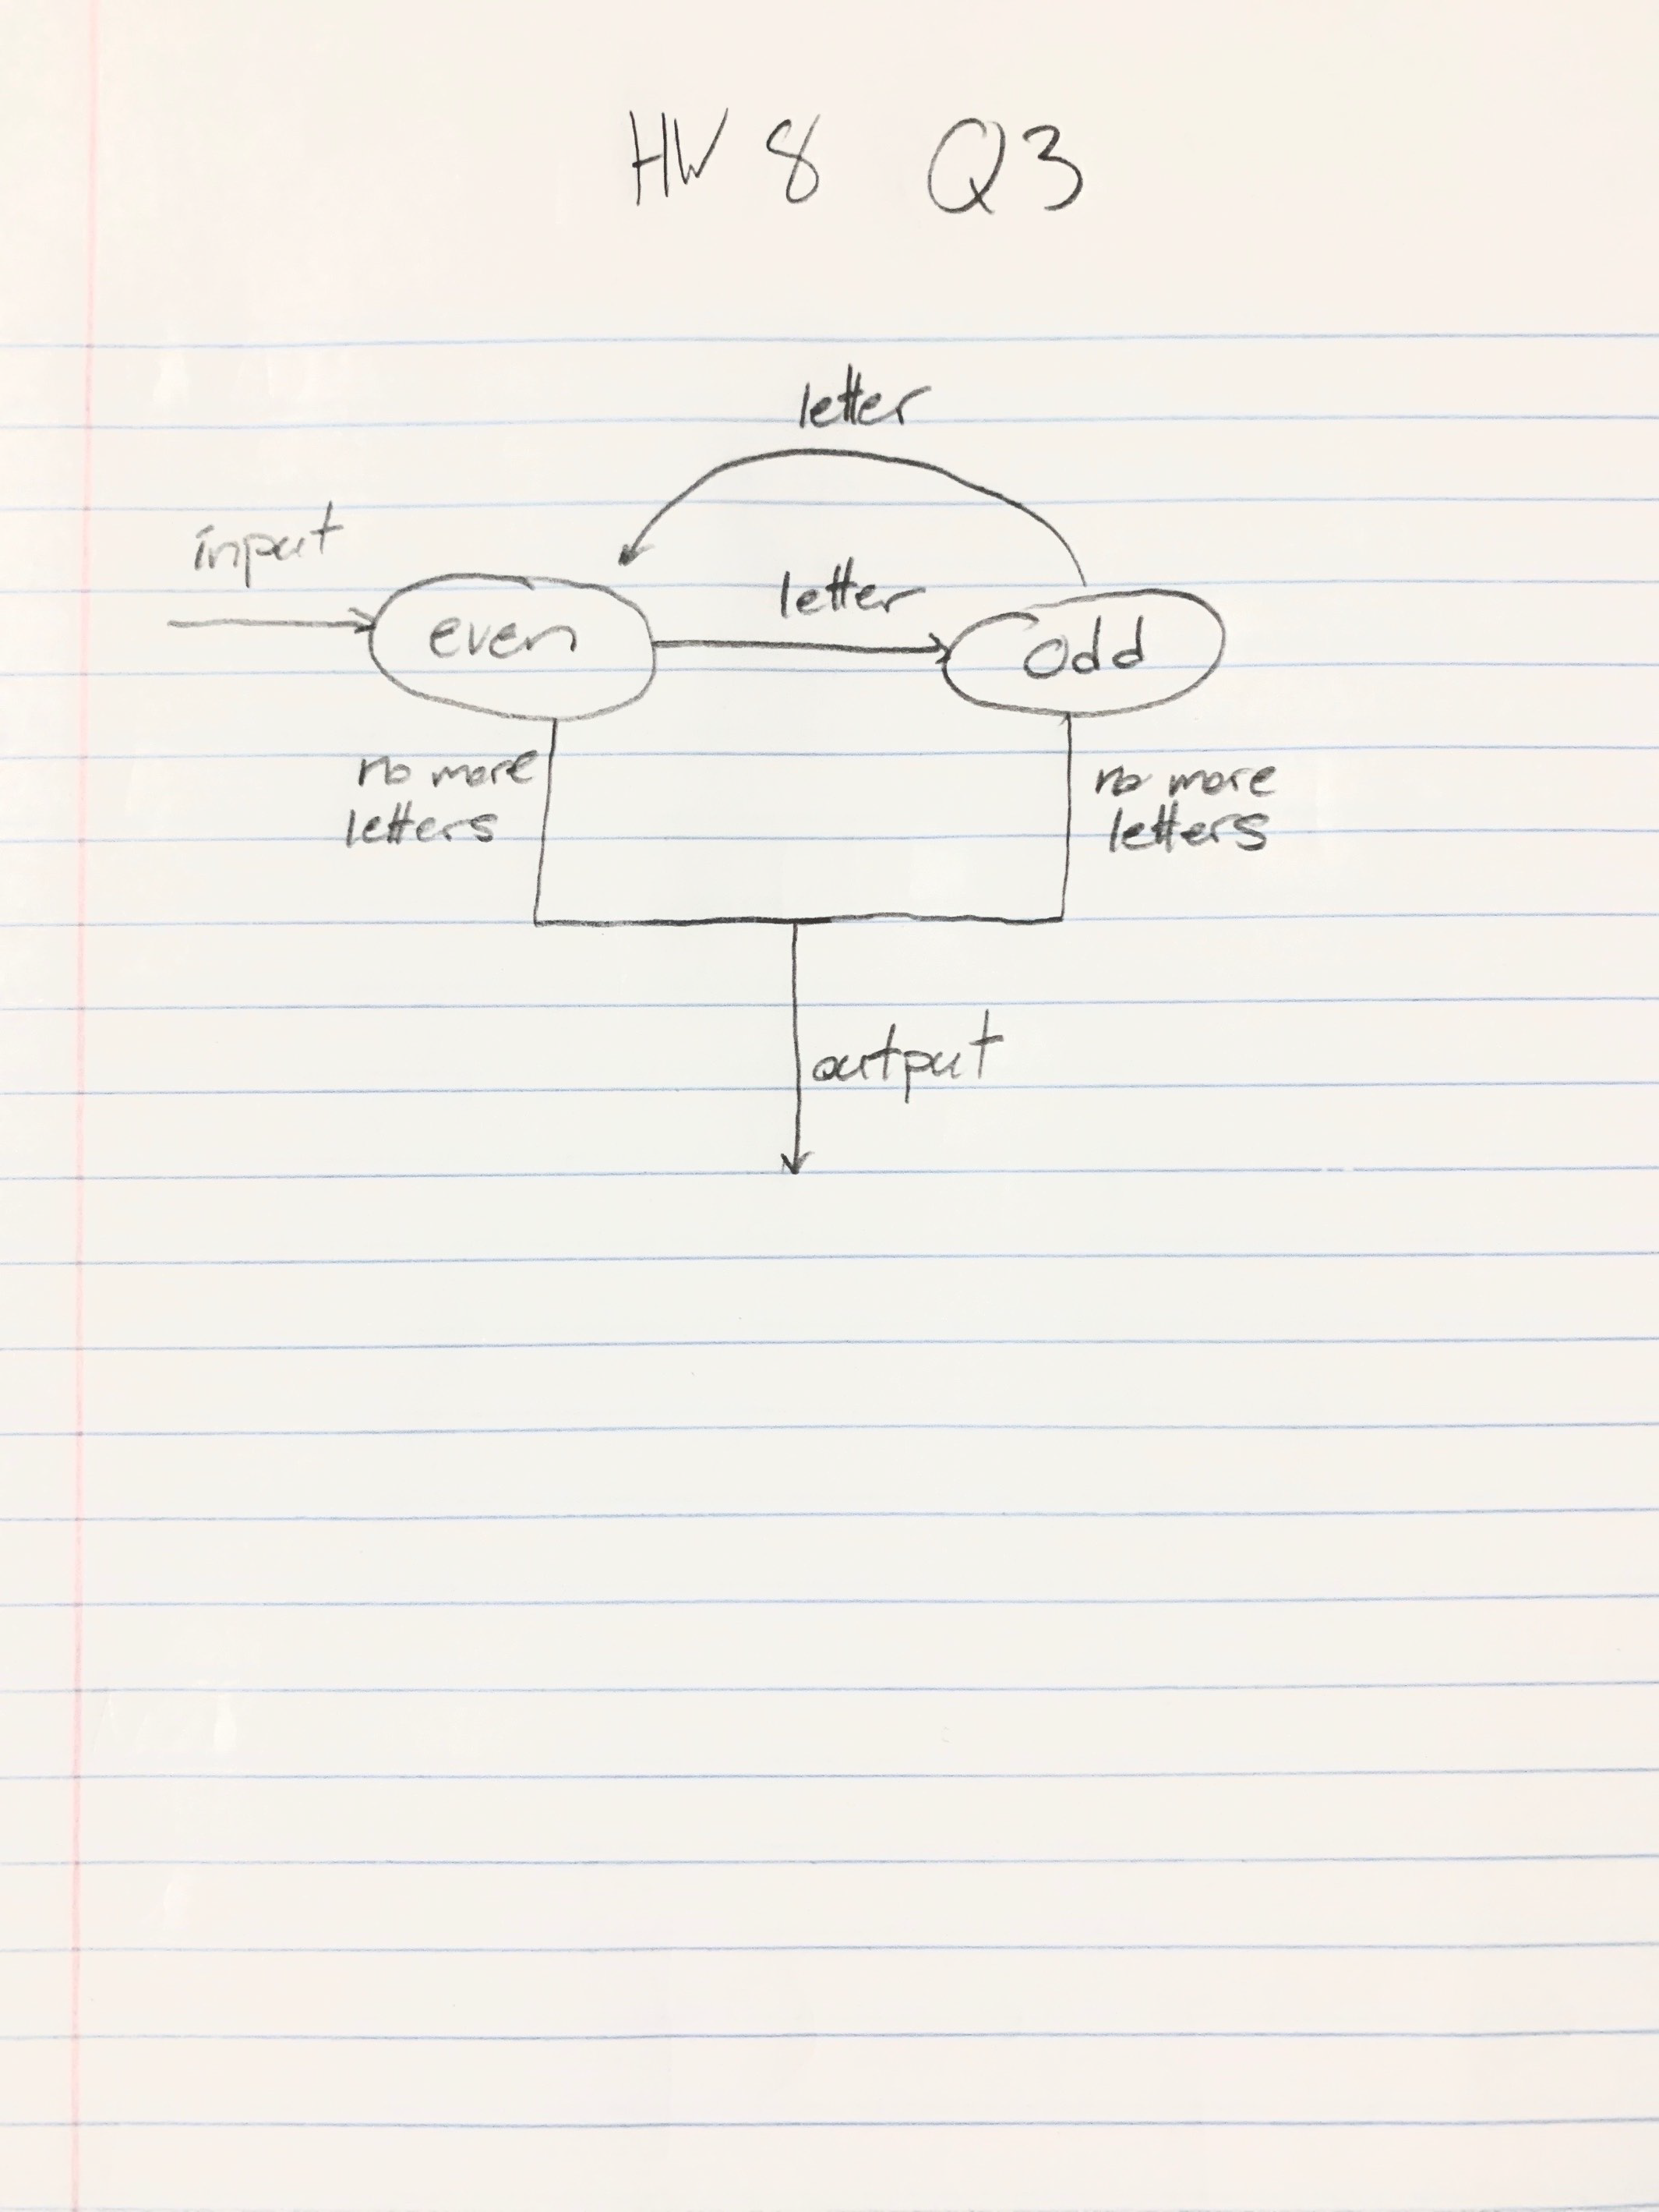 HW 8 Q3
letter
input
letter
even
odd
no more
letters
no more
letters
output